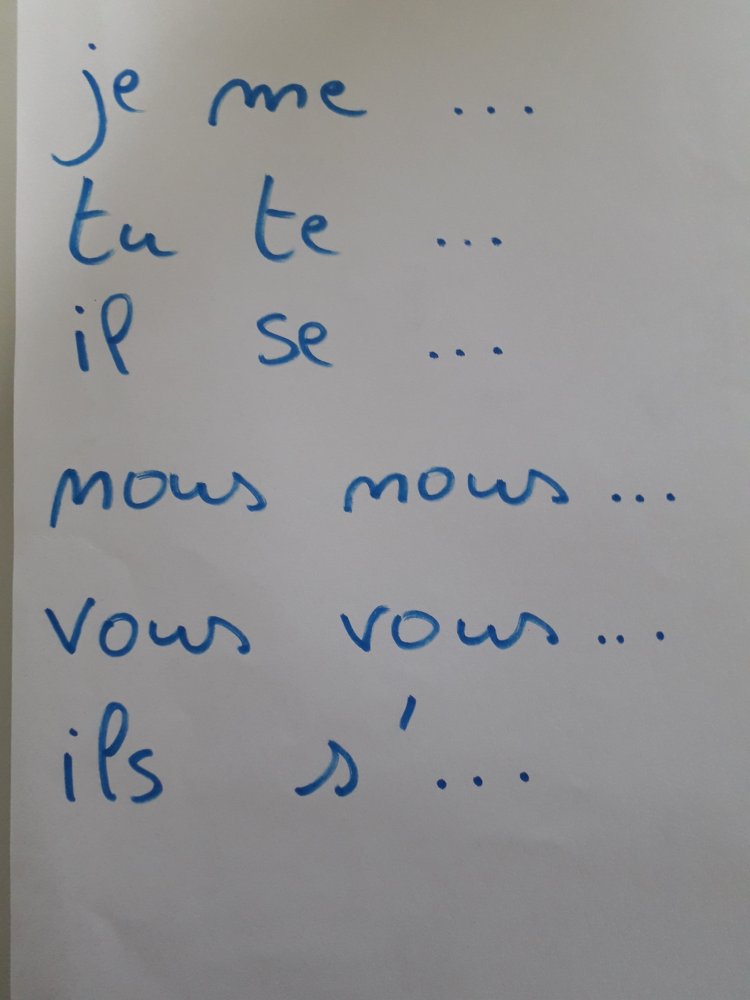 je me ...
tu te ...
il se ...
nous nous ...
vous vous ...
ils s'...